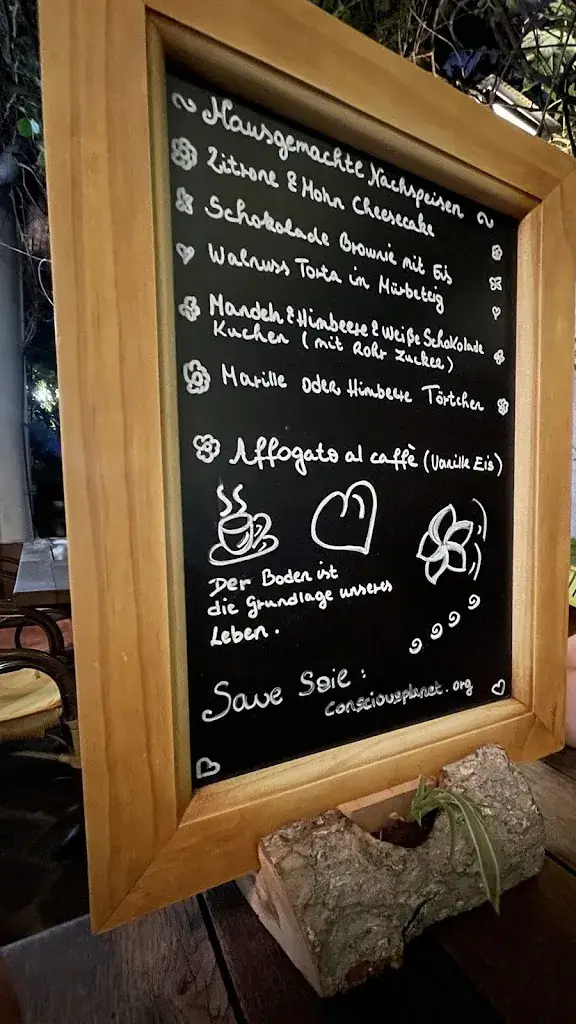 ~ Hausgemachte Nachspeisen ~
Zitrone & Mohn Cheesecake
Schokolade Brownie mit Eis
Walnuss Torta im Mürbeteig
Mandeln & Himbeere & Weiße Schokolade
Kuchen (mit Rohr Zucker)
Marille oder Himbeere Törtchen
Affogato al caffè (Vanille Eis)
Der Boden ist
die Grundlage unseres
Leben.
Save Soie :
consciousplanet.org